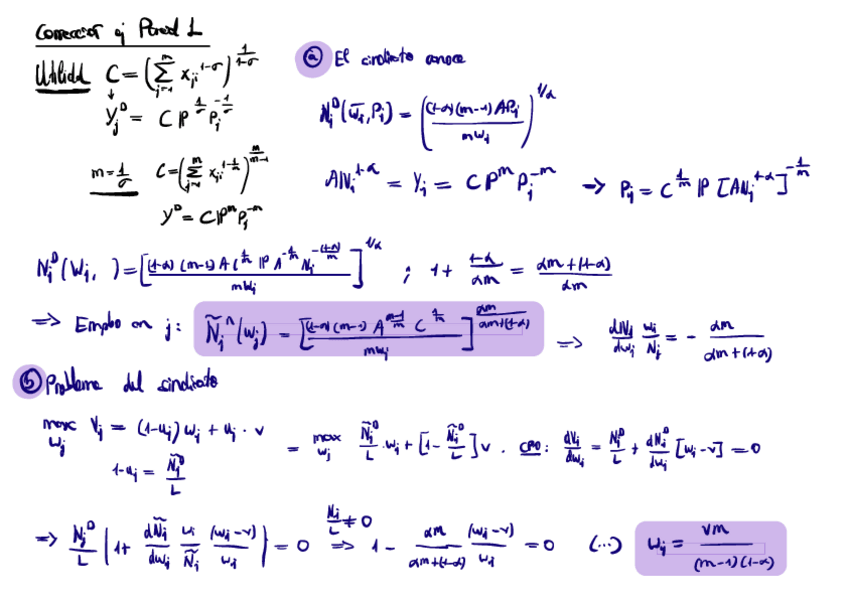 Corrección ej Parcial 1
Utilidad C = (∑_{j=1}^{m} x_{ji}^{1-σ})^{1/(1-σ)}
↓
Y_j^D = C P^{1/σ} P_j^{-1/σ}
m = 1/σ C = (∑_{j=1}^{m} x_{ji}^{1-1/m})^{m/(m-1)}
Y^D = C P^m P_j^{-m}
ⓐ El sindicato conoce
N_j^D(w̄_j, P_j) = ((1-α)(m-1) A P_j / m w_j)^{1/α}
A N_j^{1-α} = Y_j = C P^m P_j^{-m} → P_j = C^{1/m} P [A N_j^{1-α}]^{-1/m}
N_j^D(W_j, ) = [(1-α)(m-1) A C^{1/m} P A^{-1/m} N_j^{-(1-α)/m} / m w_j]^{1/α} ; 1 + (1-α)/(αm) = (αm+(1-α))/(αm)
⇒ Empleo en j: Ñ_j^D(w_j) = [(1-α)(m-1) A^{(m-1)/m} C^{1/m} / m w_j]^{αm/(αm+(1-α))} ⇒ dN_j/dw_j w_j/N_j = - αm/(αm+(1-α))
ⓑ Problema del sindicato
max_{w_j} V_j = (1-u_j) w_j + u_j · v = max_{w_j} Ñ_j^D/L · w_j + [1 - Ñ_j^D/L] v . CPO: dV_j/dw_j = N_j^D/L + dN_j^D/dw_j [w_j - v] = 0
1-u_j = Ñ_j^D/L
⇒ N_j^D/L (1 + dÑ_j/dw_j w_j/Ñ_j (w_j-v)/w_j) = 0 N_j/L ≠ 0 ⇒ 1 - αm/(αm+(1-α)) (w_j-v)/w_j = 0 (...) w_j = vm/((m-1)(1-α))